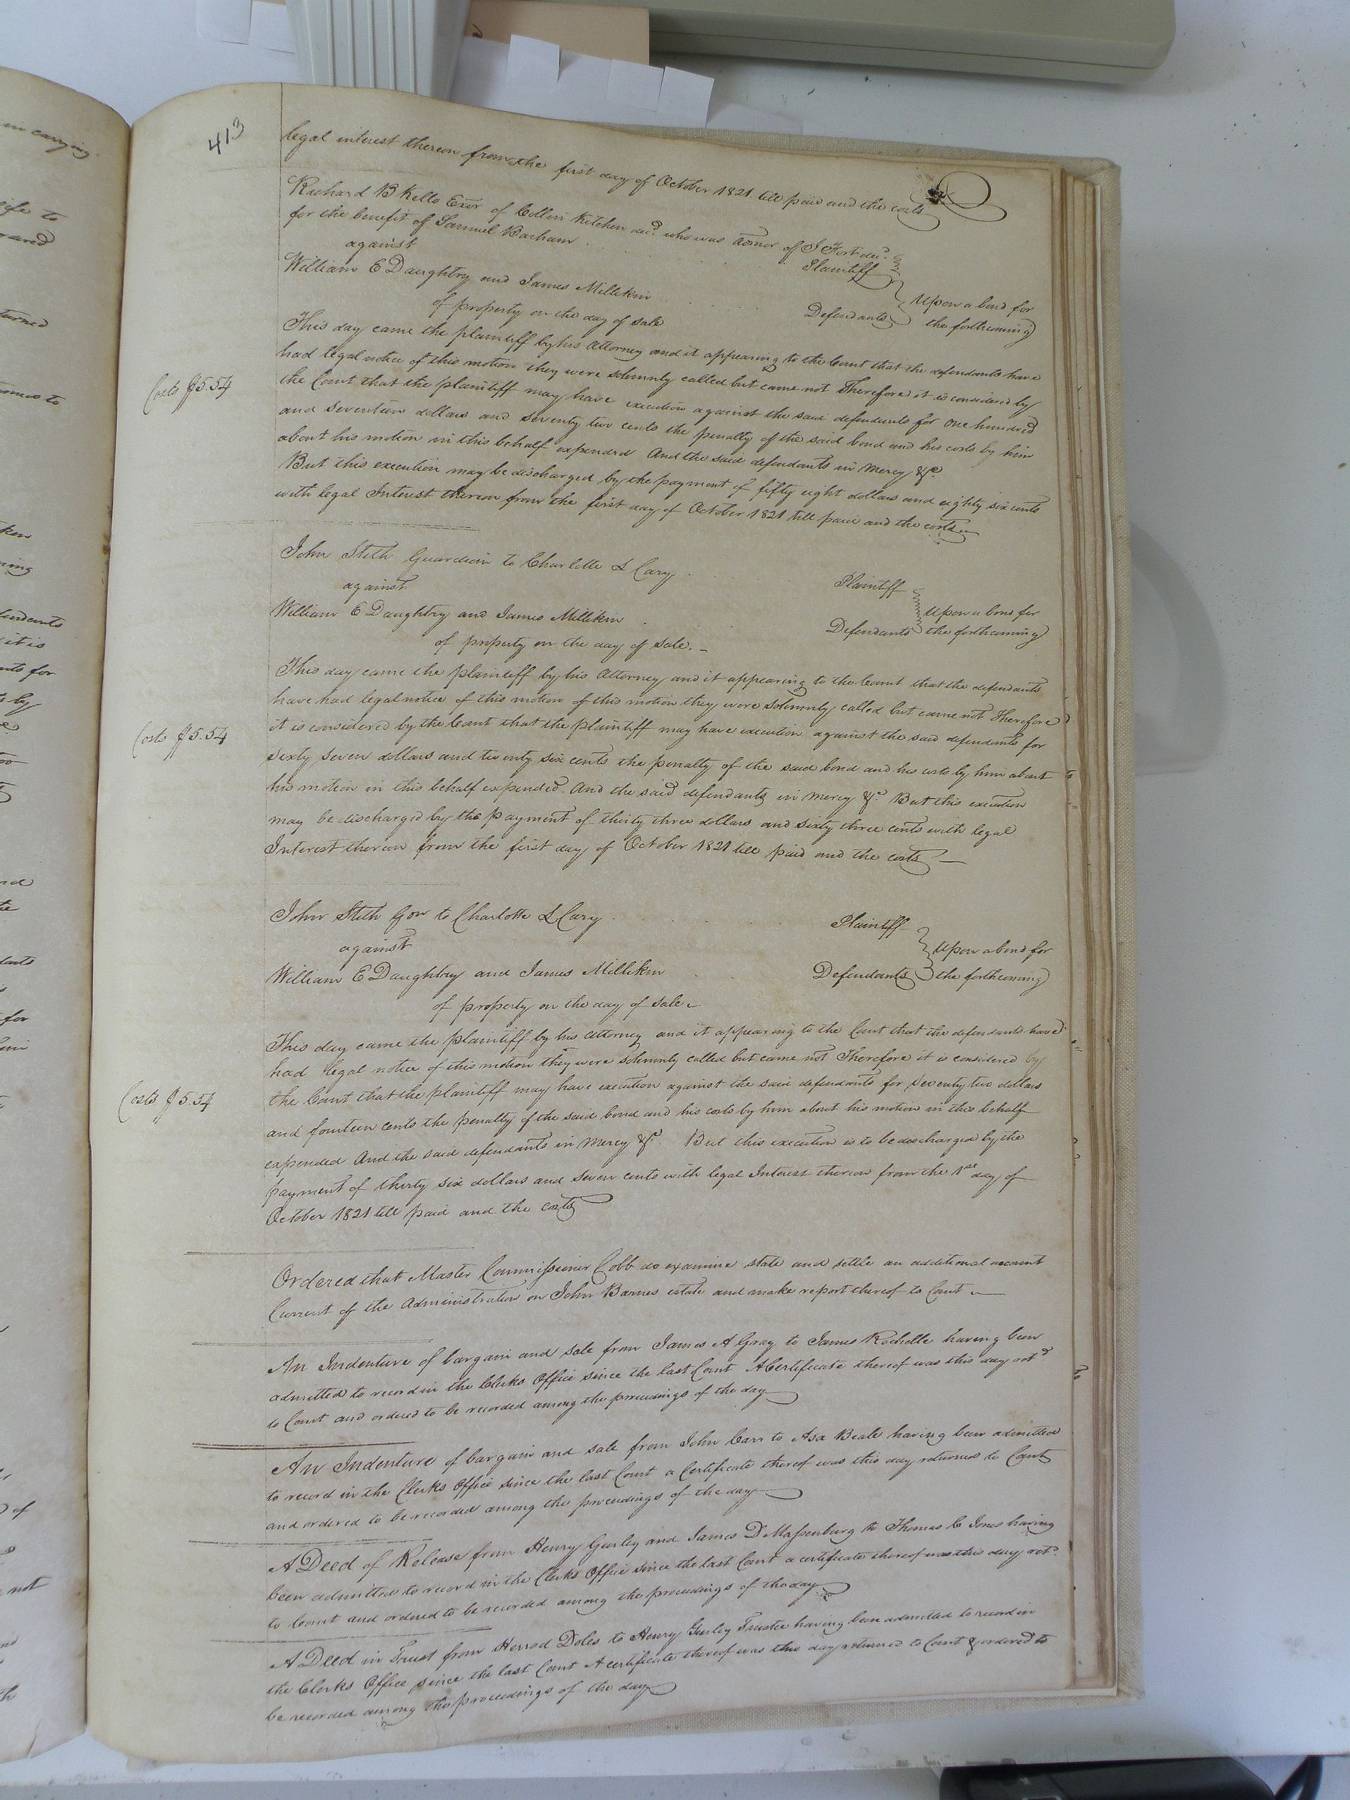 413
legal interest thereon from the first day of October 1821 till paid and the costs
Richard B Kello Exor of Collin Kitchen decd. who was admor of J Fort decd.
for the benefit of Samuel Barham Plaintiff
against
Upon a bond for
William E Daughtry and James Millikin Defendants the forthcoming
of property on the day of sale
This day came the plaintiff by his Attorney and it appearing to the Court that the defendants have
had legal notice of this motion they were solemnly called but came not Therefore it is considered by
Costs $5.54
the Court that the plaintiff may have execution against the said defendants for one hundred
and seventeen dollars and seventy two cents the penalty of the said bond and his costs by him
about his motion in this behalf expended And the said defendants in mercy &c.
But this execution may be discharged by the payment of fifty eight dollars and eighty six cents
with legal Interest thereon from the first day of October 1821 till paid and the costs
John Stith Guardian to Charlotte L Cary Plaintiff
against
Upon a bond for
William E Daughtry and James Millikin Defendants the forthcoming
of property on the day of sale.
This day came the plaintiff by his Attorney and it appearing to the Court that the defendants
have had legal notice of this motion of this motion they were solemnly called but came not Therefore
Costs $5.54
it is considered by the Court that the plaintiff may have execution against the said defendants for
sixty seven dollars and twenty six cents the penalty of the said bond and his costs by him about
his motion in this behalf expended. And the said defendants in mercy &c. But this execution
may be discharged by the payment of thirty three dollars and sixty three cents with legal
Interest thereon from the first day of October 1821 till paid and the costs
John Stith Gdn to Charlotte L Cary Plaintiff
against
Upon a bond for
William E Daughtry and James Millikin Defendants the forthcoming
of property on the day of sale
This day came the plaintiff by his attorney and it appearing to the Court that the defendants have
had legal notice of this motion they were solemnly called but came not Therefore it is considered by
Costs $5.54
the Court that the plaintiff may have execution against the said defendants for seventy two dollars
and fourteen cents the penalty of the said bond and his costs by him about his motion in this behalf
expended And the said defendants in mercy &c. But this execution is to be discharged by the
payment of thirty six dollars and seven cents with legal Interest thereon from the 1st day of
October 1821 till paid and the costs
Ordered that Master Commissioner Cobb do examine state and settle an additional account
Current of the Administration on John Barnes estate and make report thereof to Court
An Indenture of bargain and sale from James A Gray to James Rochelle having been
admitted to record in the Clerks Office since the last Court A Certificate thereof was this day retd
to Court and ordered to be recorded among the proceedings of the day
An Indenture of bargain and sale from John Carr to Asa Beale having been admitted
to record in the Clerks Office since the last Court a Certificate thereof was this day returned to Court
and ordered to be recorded among the proceedings of the day
A Deed of Release from Henry Gurley and James D Massenburg to Thomas C Jones having
been admitted to record in the Clerks Office since the last Court a certificate thereof was this day retd.
to Court and ordered to be recorded among the proceedings of the day
A Deed in Trust from Herrod Doles to Henry Gurley Trustee having been admitted to record in
the Clerks Office since the last Court A certificate thereof was this day returned to Court & ordered to
be recorded among the proceedings of the day